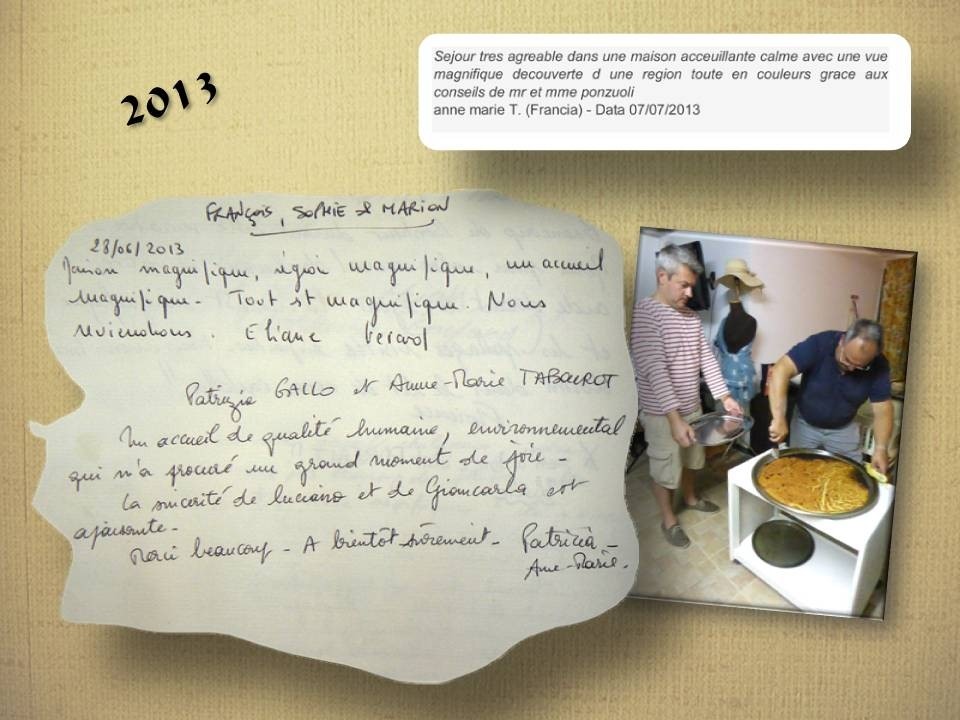 2013
Sejour tres agreable dans une maison acceuillante calme avec une vue
magnifique decouverte d une region toute en couleurs grace aux
conseils de mr et mme ponzuoli
anne marie T. (Francia) - Data 07/07/2013
FRANÇOIS, SOPHIE & MARION
28/06/2013
Maison magnifique, région magnifique, un accueil
magnifique. Tout est magnifique. Nous
reviendrons. Eliane
Patrizia GALLO et Anne-Marie TABOUROT
Un accueil de qualité humaine, environnemental
qui m'a procuré un grand moment de joie -
La sincérité de Luciano et de Giancarla est
apaisante -
Merci beaucoup - A bientôt sûrement - Patricia -
Anne-Marie.